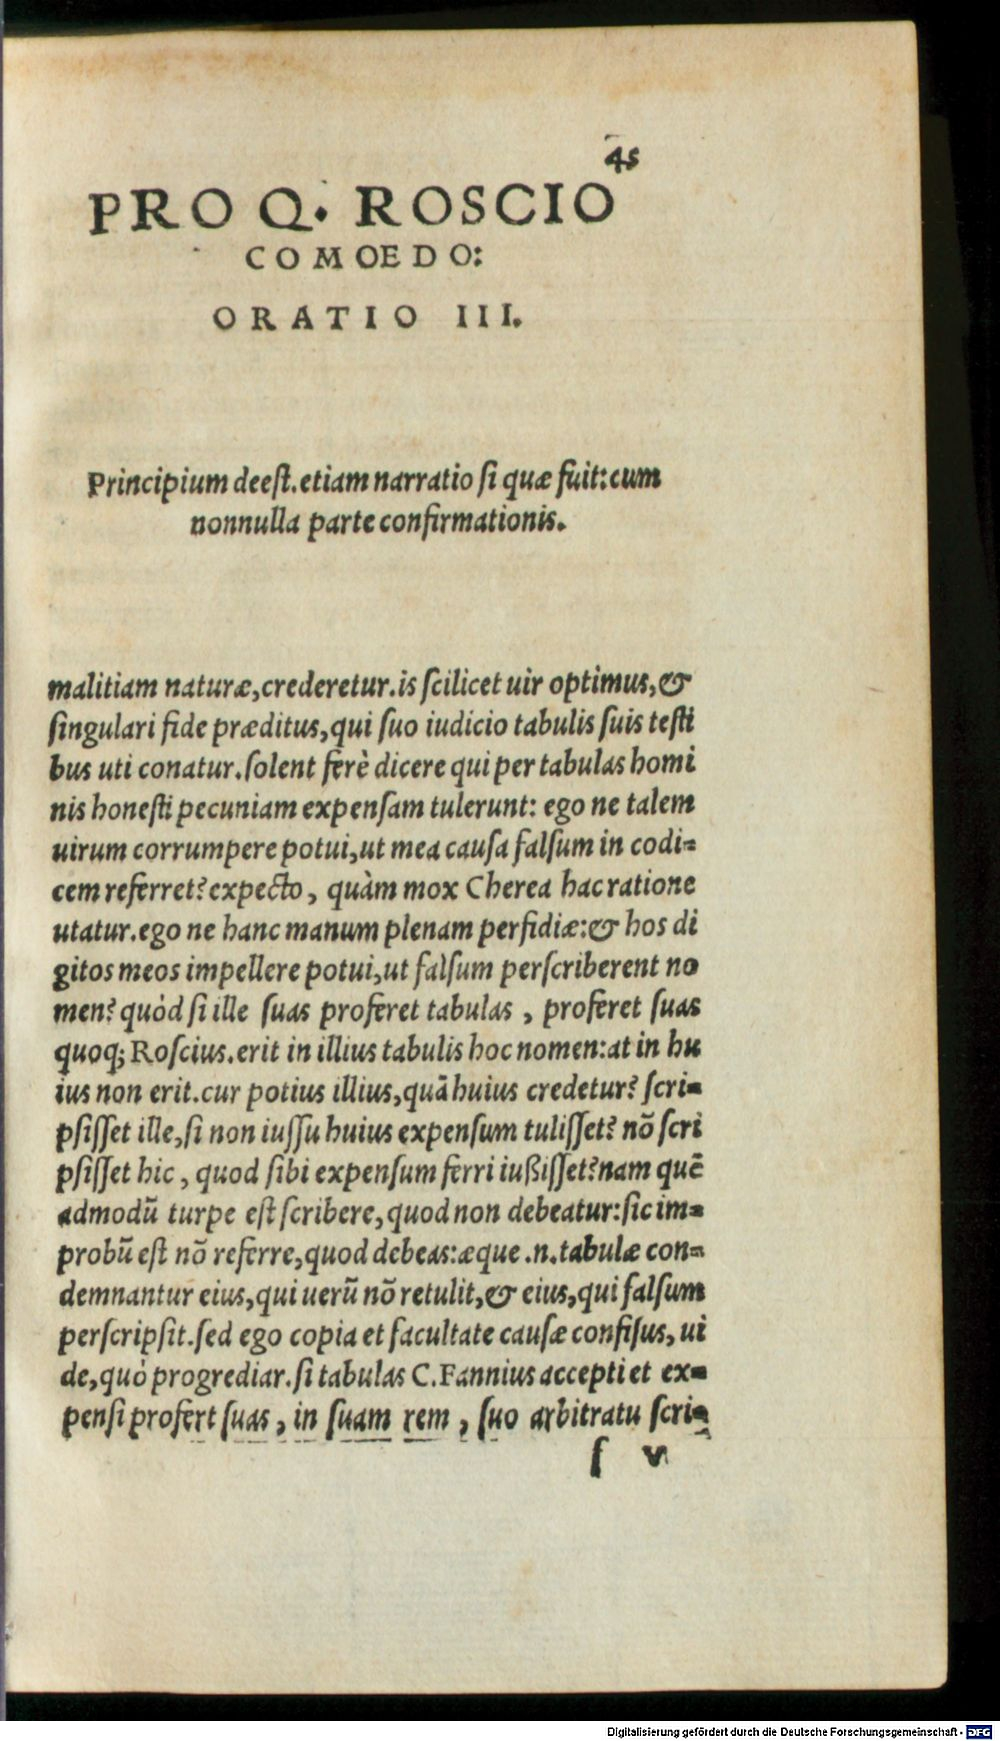 45
PRO Q. ROSCIO
COMOEDO:
ORATIO III.
Principium deeſt. etiam narratio ſi quæ fuit: cum
nonnulla parte confirmationis.
malitiam naturæ, crederetur. is ſcilicet uir optimus, &
ſingulari fide præditus, qui ſuo iudicio tabulis ſuis teſti
bus uti conatur. ſolent ferè dicere qui per tabulas homi
nis honeſti pecuniam expenſam tulerunt: ego ne talem
uirum corrumpere potui, ut mea cauſa falſum in codi-
cem referret? expecto, quàm mox Cherea hac ratione
utatur. ego ne hanc manum plenam perfidiæ: & hos di
gitos meos impellere potui, ut falſum perſcriberent no
men? quòd ſi ille ſuas proferet tabulas, proferet ſuas
quoq; Roſcius. erit in illius tabulis hoc nomen: at in hu
ius non erit. cur potius illius, quã huius credetur? ſcri-
pſiſſet ille, ſi non iuſſu huius expenſum tuliſſet? nõ ſcri
pſiſſet hic, quod ſibi expenſum ferri iußiſſet? nam quẽ
admodũ turpe eſt ſcribere, quod non debeatur: ſic im-
probũ eſt nõ referre, quod debeas: æque .n. tabulæ con-
demnantur eius, qui uerũ nõ retulit, & eius, qui falſum
perſcripſit. ſed ego copia et facultate cauſæ confiſus, ui
de, quò progrediar. ſi tabulas C. Fannius accepti et ex-
penſi profert ſuas, in ſuam rem, ſuo arbitratu ſcri-
f v
Digitalisierung gefördert durch die Deutsche Forschungsgemeinschaft - DFG